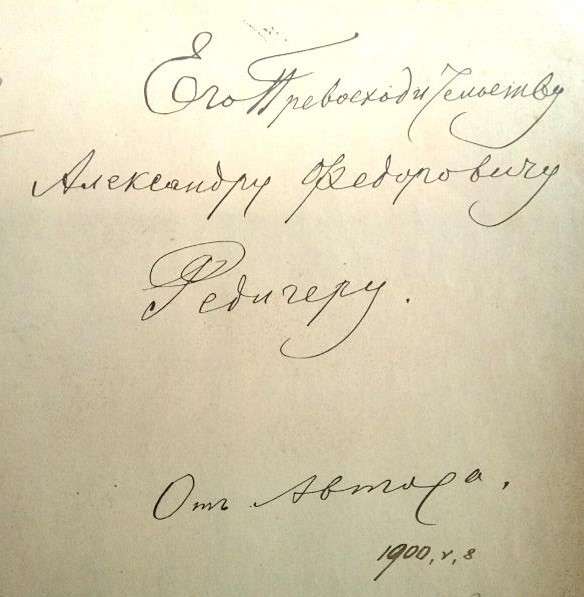 Его Превосходительству
Александру Федоровичу
Редигеру.
Отъ Автора.
1900, V, 8